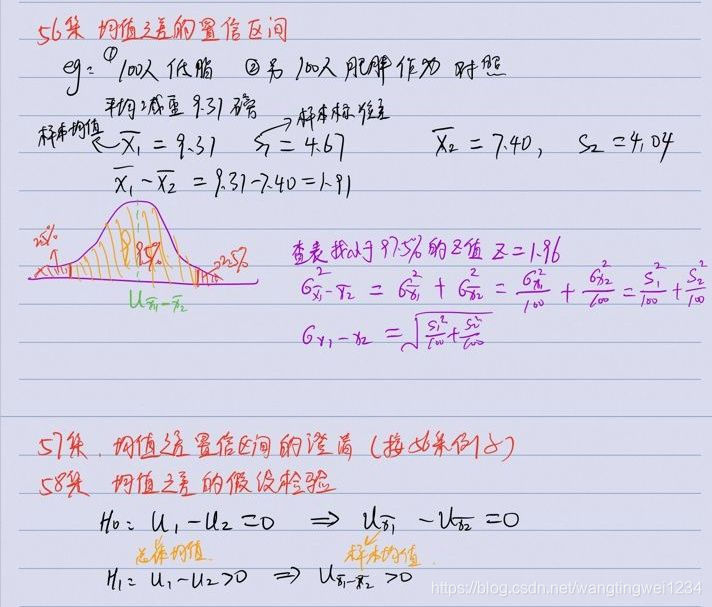 56集 均值之差的置信区间
eg: ①100人低脂 ②另100人肥胖作为对照
平均减重 9.31磅
样本均值 样本标准差
x̄₁ = 9.31 S₁ = 4.67 x̄₂ = 7.40, S₂ = 4.04
x̄₁ - x̄₂ = 9.31-7.40 = 1.91
2.5% 95% 2.5%
U x̄₁-x̄₂
查表找小于97.5%的Z值 Z = 1.96
σ²x̄₁-x̄₂ = σ²x̄₁ + σ²x̄₂ = σ²x₁/100 + σ²x₂/100 = S₁²/100 + S₂²/100
σx₁-x₂ = √(S₁²/100 + S₂²/100)
57集. 均值之差置信区间的澄清 (接56集例子)
58集 均值之差的假设检验
H₀: U₁-U₂=0 ⇒ Ux̄₁ - Ux̄₂ = 0
总体均值 样本均值
H₁: U₁-U₂>0 ⇒ Ux̄₁-x̄₂ >0
https://blog.csdn.net/wangtingwei1234